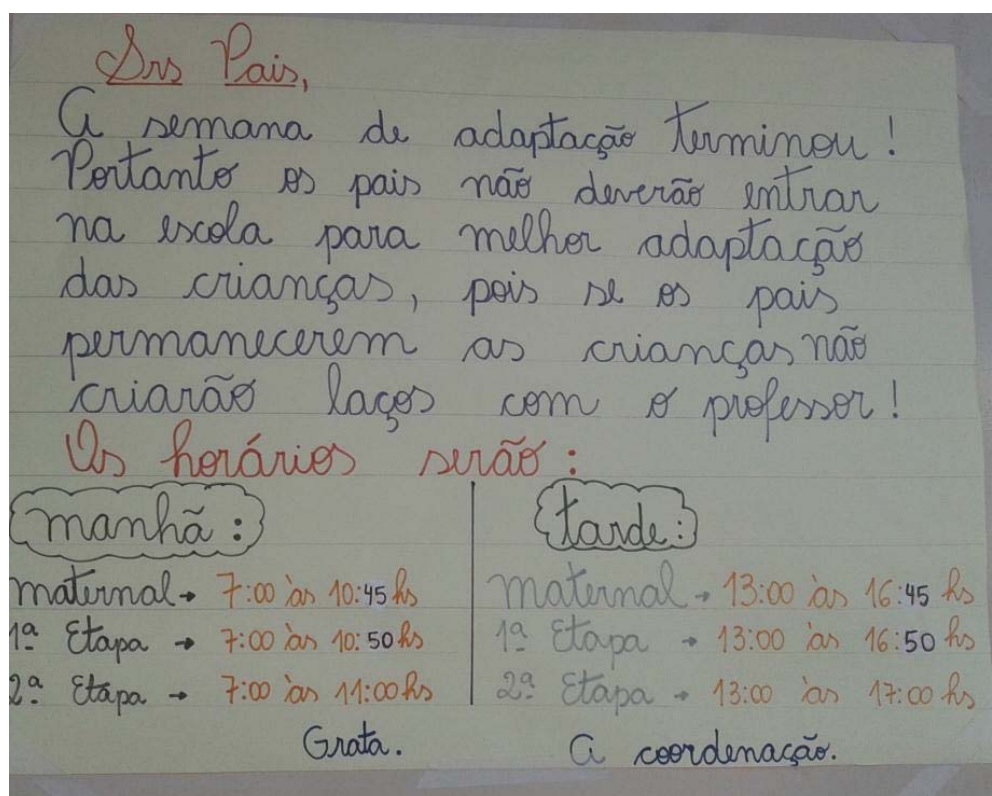 Srs Pais,
A semana de adaptação terminou!
Portanto os pais não deverão entrar
na escola para melhor adaptação
das crianças, pois se os pais
permanecerem as crianças não
criarão laços com o professor!
Os horários serão:
manhã: tarde:
maternal → 7:00 às 10:45 hs maternal → 13:00 às 16:45 hs
1ª Etapa → 7:00 às 10:50 hs 1ª Etapa → 13:00 às 16:50 hs
2ª Etapa → 7:00 às 11:00 hs 2ª Etapa → 13:00 às 17:00 hs
Grata. A coordenação.